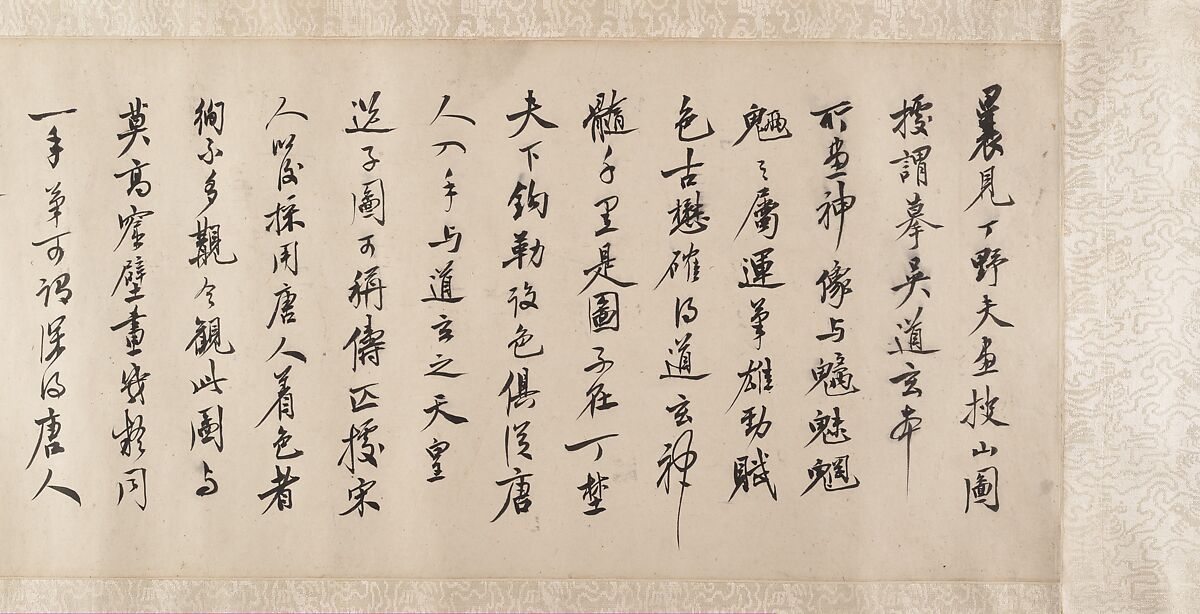 曩見丁野夫畫搜山圖
據謂摹吳道玄本
所畫神像与魑魅魍
魎々屬運筆雄勁賦
色古懋確得道玄神
髓千里是圖子在丁埜
夫下鈎勒設色俱從唐
人入手与道玄之天皇
送子圖可稱儔匹按宋
人以後採用唐人着色者
徇不多觀今觀此圖与
莫高窟壁畫幾歟同
一手筆可謂深得唐人